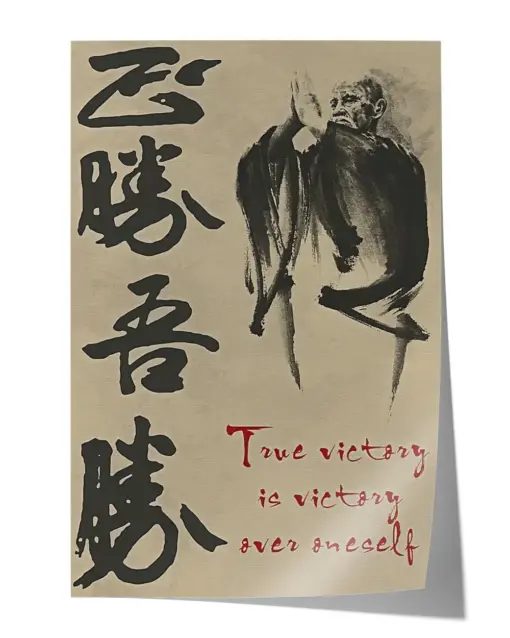 正勝吾勝
True victory
is victory
over oneself